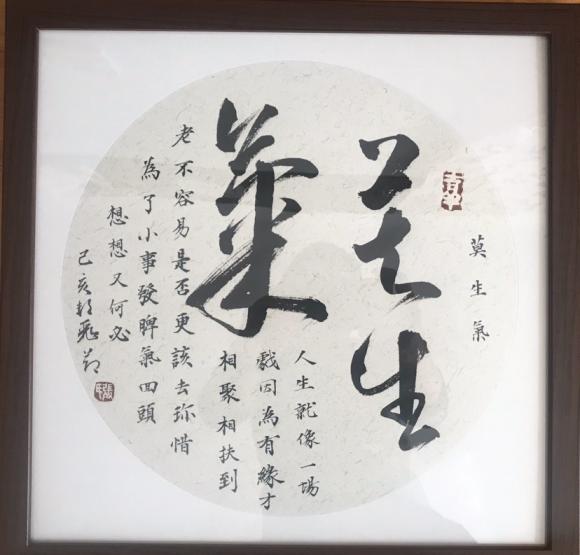 莫生氣
莫生
氣
人生就像一場
戲因為有緣才
相聚相扶到
老不容易是否更該去珎惜
為了小事發脾氣回頭
想想又何必
己亥